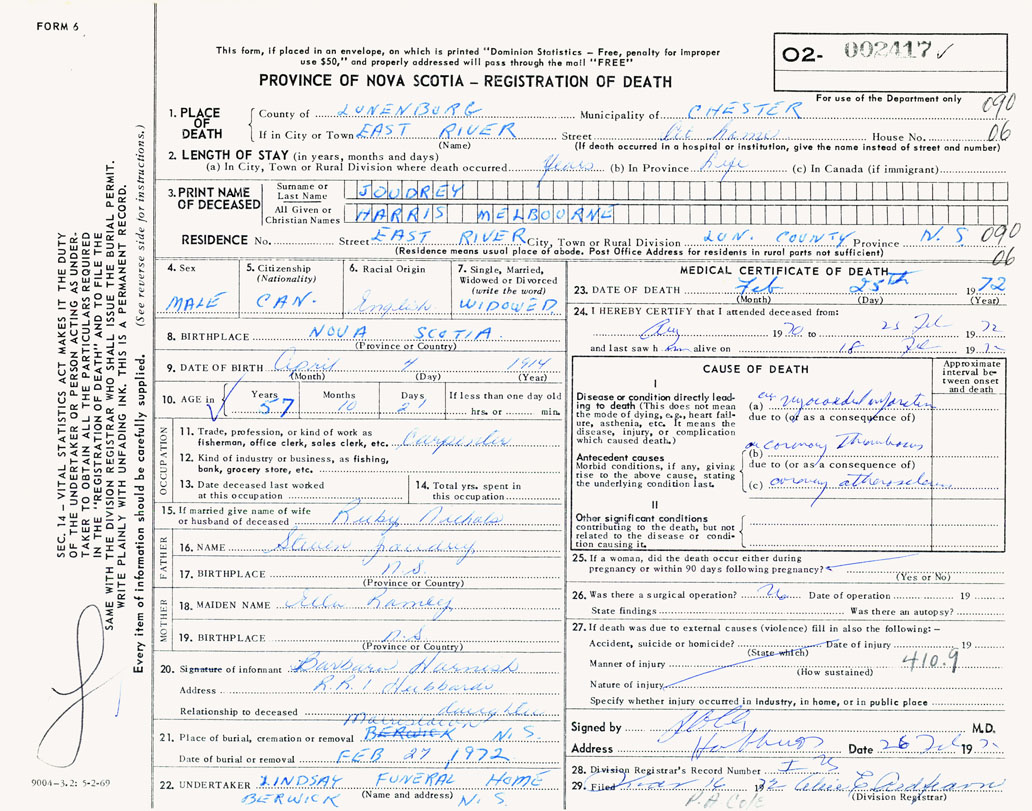 FORM 6
This form, if placed in an envelope, on which is printed "Dominion Statistics – Free, penalty for improper
use $50," and properly addressed will pass through the mail "FREE"
PROVINCE OF NOVA SCOTIA – REGISTRATION OF DEATH
02- 002417 ✓
For use of the Department only
090
06
1. PLACE OF DEATH
County of LUNENBURG Municipality of CHESTER
If in City or Town EAST RIVER Street At home House No.
(Name) (If death occurred in a hospital or institution, give the name instead of street and number)
2. LENGTH OF STAY (in years, months and days)
(a) In City, Town or Rural Division where death occurred Years (b) In Province Life (c) In Canada (if immigrant)
3. PRINT NAME OF DECEASED
Surname or Last Name JOUDREY
All Given or Christian Names HARRIS MELBOURNE
RESIDENCE No. Street EAST RIVER City, Town or Rural Division LUN. COUNTY Province N.S
(Residence means usual place of abode. Post Office Address for residents in rural parts not sufficient)
090
06
4. Sex MALE
5. Citizenship (Nationality) CAN.
6. Racial Origin English
7. Single, Married, Widowed or Divorced (write the word) WIDOWED
8. BIRTHPLACE NOVA SCOTIA
(Province or Country)
9. DATE OF BIRTH April 4 1914
(Month) (Day) (Year)
10. AGE in Years 57 Months 10 Days 21 If less than one day old hrs. or min.
OCCUPATION
11. Trade, profession, or kind of work as
fisherman, office clerk, sales clerk, etc. Carpenter
12. Kind of industry or business, as fishing,
bank, grocery store, etc.
13. Date deceased last worked at this occupation
14. Total yrs. spent in this occupation
15. If married give name of wife
or husband of deceased Ruby Nichols
FATHER
16. NAME Joudrey
17. BIRTHPLACE N.S.
(Province or Country)
MOTHER
18. MAIDEN NAME Ramey
19. BIRTHPLACE N.S.
(Province or Country)
20. Signature of informant Barbara Harnish
Address R.R.1 Hubbards
Relationship to deceased daughter
21. Place of burial, cremation or removal BERWICK N.S.
Date of burial or removal FEB 27, 1972
22. UNDERTAKER LINDSAY FUNERAL HOME
(Name and address)
BERWICK N.S.
MEDICAL CERTIFICATE OF DEATH
23. DATE OF DEATH Feb 25th 1972
(Month) (Day) (Year)
24. I HEREBY CERTIFY that I attended deceased from:
1970 to 25 Feb 1972
and last saw him alive on 18 Feb 1972
CAUSE OF DEATH
Approximate interval between onset and death
I
Disease or condition directly leading to death (This does not mean the mode of dying, e.g., heart failure, asthenia, etc. It means the disease, injury, or complication which caused death.)
(a) myocardial infarction
due to (or as a consequence of)
Antecedent causes
Morbid conditions, if any, giving rise to the above cause, stating the underlying condition last.
(b) coronary thrombosis
due to (or as a consequence of)
(c) coronary atherosclerosis
II
Other significant conditions
contributing to the death, but not related to the disease or condition causing it.
25. If a woman, did the death occur either during
pregnancy or within 90 days following pregnancy?
(Yes or No)
26. Was there a surgical operation? No Date of operation 19
State findings Was there an autopsy?
27. If death was due to external causes (violence) fill in also the following: –
Accident, suicide or homicide? Date of injury 19
(State which)
410.9
Manner of injury
(How sustained)
Nature of injury
Specify whether injury occurred in industry, in home, or in public place
Signed by M.D.
Address Hubbards Date 26 Feb 1972
28. Division Registrar's Record Number
29. Filed 1972
(Division Registrar)
9004-3.2: 5-2-69
SEC. 14 – VITAL STATISTICS ACT MAKES IT THE DUTY
OF THE UNDERTAKER OR PERSON ACTING AS UNDER-
TAKER TO OBTAIN ALL THE PARTICULARS REQUIRED
IN THE "REGISTRATION OF DEATH" AND FILE THE
SAME WITH THE DIVISION REGISTRAR WHO SHALL ISSUE THE BURIAL PERMIT.
WRITE PLAINLY WITH UNFADING INK. THIS IS A PERMANENT RECORD.
Every item of information should be carefully supplied. (See reverse side for instructions.)